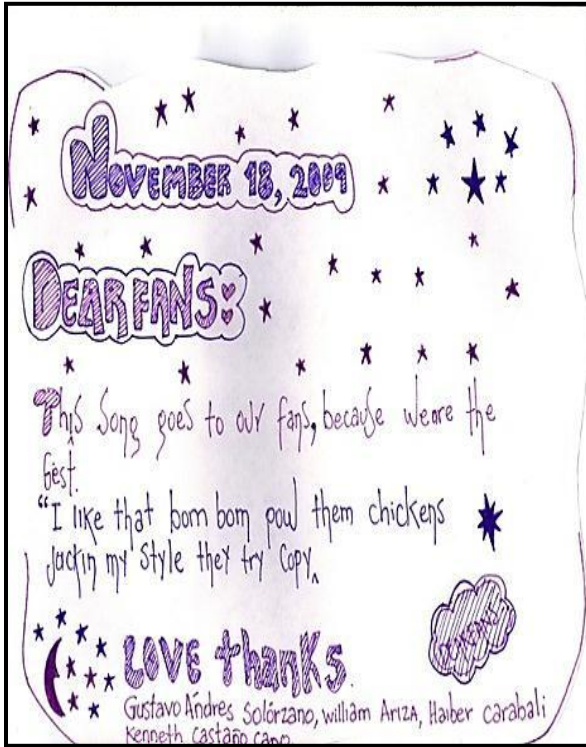 NOVEMBER 18, 2009
DEAR FANS:
This Song goes to our fans, because weare the
best.
“I like that bom bom pow them chickens
jackin my Style they try Copy
LOVE thanks.
Gustavo Andres Solórzano, william Ariza, Haiber carabali
Kenneth Castaño cano
DEAR FANS